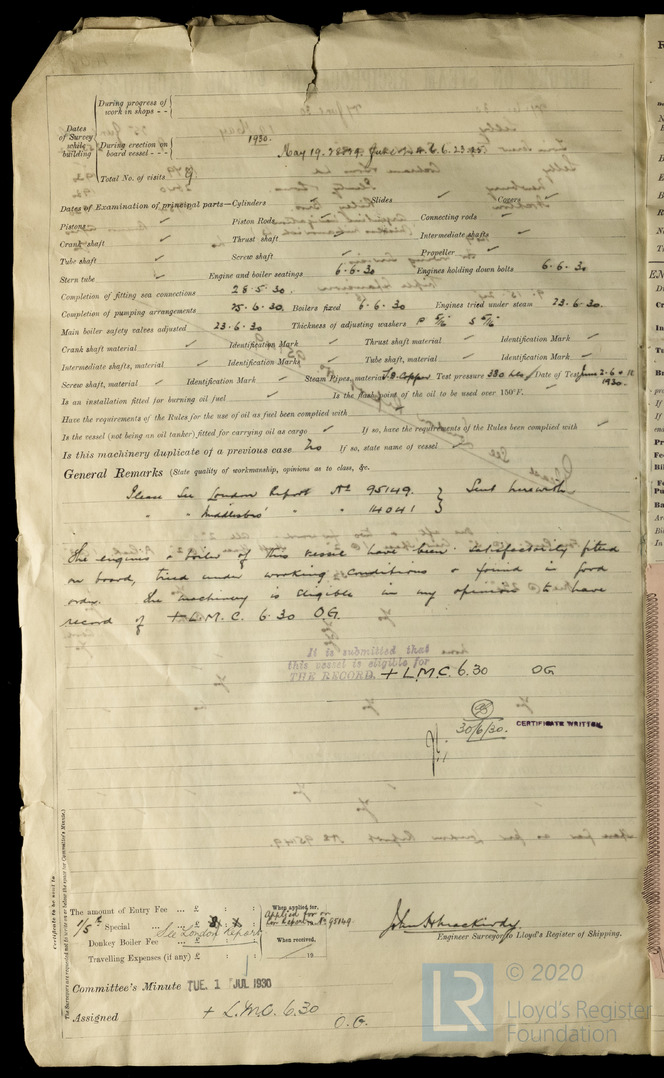 During progress of work in shops - -
Dates of Survey while building
During erection on board vessel - - -
1930.
May 19. 28
Total No. of visits 9
Dates of Examination of principal parts—Cylinders Slides ✓ Covers
Pistons ✓ Piston Rods Connecting rods ✓
Crank shaft ✓ Thrust shaft Intermediate shafts ✓
Tube shaft ✓ Screw shaft ✓ Propeller ✓
Stern tube ✓ Engine and boiler seatings 6.6.30 Engines holding down bolts 6.6.30
Completion of fitting sea connections 28.5.30.
Completion of pumping arrangements 25.6.30. Boilers fixed 6.6.30 Engines tried under steam 23.6.30.
Main boiler safety valves adjusted 23.6.30 Thickness of adjusting washers P S
Crank shaft material ✓ Identification Mark ✓ Thrust shaft material ✓ Identification Mark ✓
Intermediate shafts, material ✓ Identification Marks ✓ Tube shaft, material ✓ Identification Mark ✓
Screw shaft, material ✓ Identification Mark ✓ Steam Pipes, material S.D. Copper Test pressure 380 lbs Date of Test June 2. 6
1930.
Is an installation fitted for burning oil fuel ✓ Is the flash point of the oil to be used over 150°F. ✓
Have the requirements of the Rules for the use of oil as fuel been complied with
Is the vessel (not being an oil tanker) fitted for carrying oil as cargo ✓ If so, have the requirements of the Rules been complied with ✓
Is this machinery duplicate of a previous case No If so, state name of vessel ✓
General Remarks (State quality of workmanship, opinions as to class, &c.
Please See London Report No 95149. } Sent herewith
" " Middlesbro' " " 14041 }
The engines & boiler of this vessel have been satisfactorily fitted
on board, tried under working conditions & found in good
order. The machinery is eligible in my opinion to have
record of + L.M.C. 6.30 OG.
It is submitted that
this vessel is eligible for
THE RECORD. + L.M.C. 6.30 OG
30/6/30.
CERTIFICATE WRITTEN.
Certificate to be sent to
The Surveyors are requested not to write on or below the space for Committee's Minute.
The amount of Entry Fee ... £ : :
1/5th Special ... ... £ : :
See London Report
Donkey Boiler Fee ... £ : :
Travelling Expenses (if any) £ : :
When applied for,
Applied for on
Lon Report No 95149.
When received,
19
Engineer Surveyor to Lloyd's Register of Shipping.
Committee's Minute TUE. 1 JUL 1930
Assigned + L.M.C. 6.30
O.G.
LR
© 2020
Lloyd's Register
Foundation